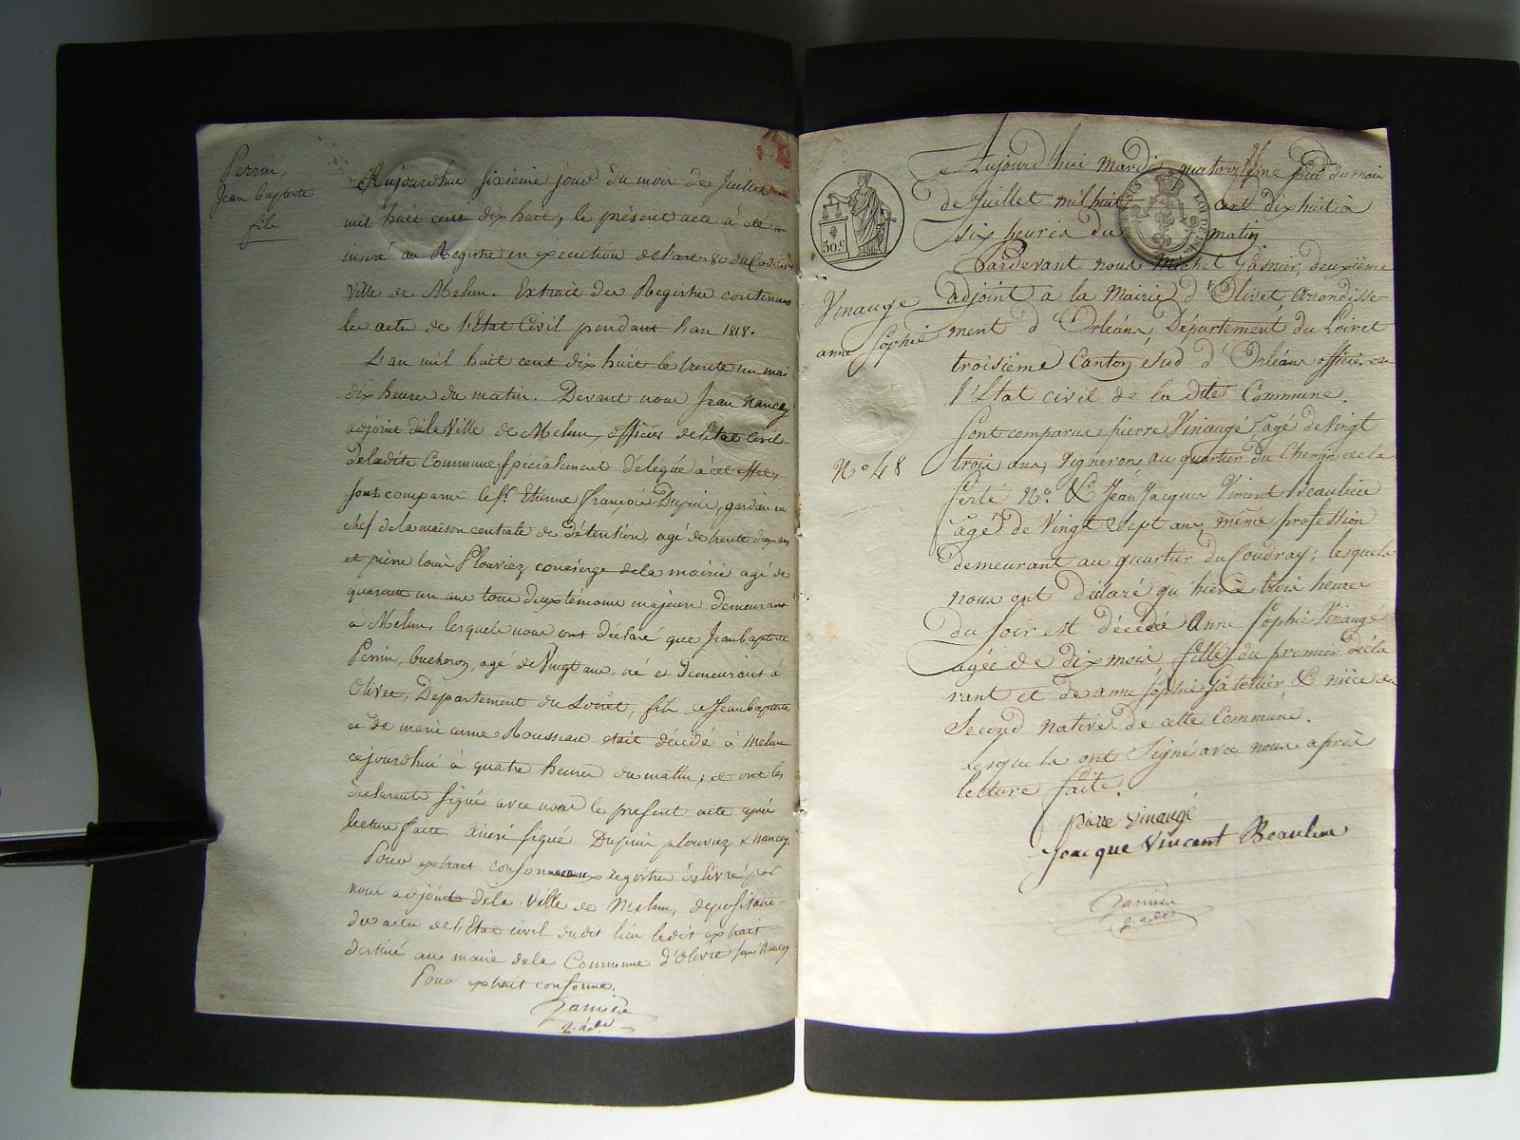 Perrin,
Jean baptiste
fils
Aujourd'hui sixieme jour du mois de Juillet
mil huit cent dix huit, le présent acte à été
inséré au Registre en execution de l'art. 80 du Code
Ville de Melun. Extrait des Registres contenant
les actes de l'Etat Civil pendant l'an 1818.
L'an mil huit cent dix huit le trente un mai
dix heures du matin. Devant nous Jean Nancey
adjoint de la Ville de Melun, officier de l'état Civil
de ladite Commune, spécialement délégué à cet effet,
sont comparu le sr. Etienne francois Dupuis, gardien en
chef de la maison centrale de détention, agé de trente
et pierre louis Plouviez concierge de la mairie agé de
quarante un ans tous deux témoins majeurs demeurant
a Melun, lesquels nous ont déclaré que Jean baptiste
Perrin, bucheron, agé de Vingt ans, né et demeurant à
Olivet, Département du Loiret, fils de Jean baptiste
et de marie anne Rousseau était décédé à Melun
cejourd'hui à quatre heures du matin; et ont les
déclarants signé avec nous le present acte après
lecture faite. ainsi signé Dupuis plouviez & Nancey
Pour extrait conforme aux registres délivré par
nous adjoint de la Ville de Melun, dépositaire
des actes de l'Etat civil dudit lieu ledit extrait
destiné au maire de la Commune d'Olivet signé Nancey
Pour extrait conforme.
2 adt
Aujourd'hui mardi quatorzième jour du mois
de Juillet mil huit cent dix huit à
six heures du matin
Pardevant nous Michel Garnier, deuxième
adjoint à la Mairie d'Olivet, arrondisse-
ment d'Orléans, Département du Loiret
troisième Canton sud d'Orléans officier de
l'Etat civil de la dite Commune.
Sont comparus pierre Vinaugé agé de vingt
trois ans, vigneron au quartier du de la
ferté No. & Jean Jacques Vincent Beaulieu
agé de Vingt Sept ans même profession
demeurant au quartier du Coudray; lesquels
nous ont déclaré qu'hier à trois heures
du soir est décédée Anne Sophie Vinaugé
agée de dix mois fille du premier décla
rant et de anne sophie & nièce du
Second native de cette Commune.
Lesquels ont Signé avec nous après
lecture faite.
30c
Vinauge
anne Sophie
No 48
pierre vinaugé
Jacque Vincent Beaulieu
2 adt